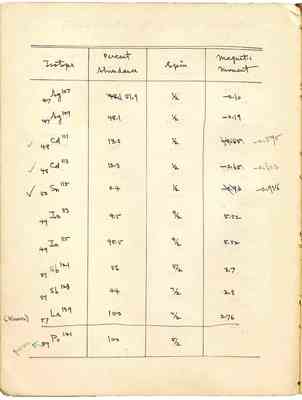 Isotope Percent Abundance Spin Magnetic Moment
47 Ag 107 51.9 ½ -0.10
47 Ag 109 48.1 ½ -0.19
✓ 48 Cd 111 13.0 ½ -0.595
✓ 48 Cd 113 12.3 ½ -0.65
✓ 50 Sn 115 0.4 ½
49 In 113 4.5 9/2 5.52
49 In 115 95.5 9/2 5.52
51 Sb 121 56 5/2 3.7
51 Sb 123 44 7/2 2.8
57 La 139 100 7/2 2.76
59 Pr 141 100 5/2